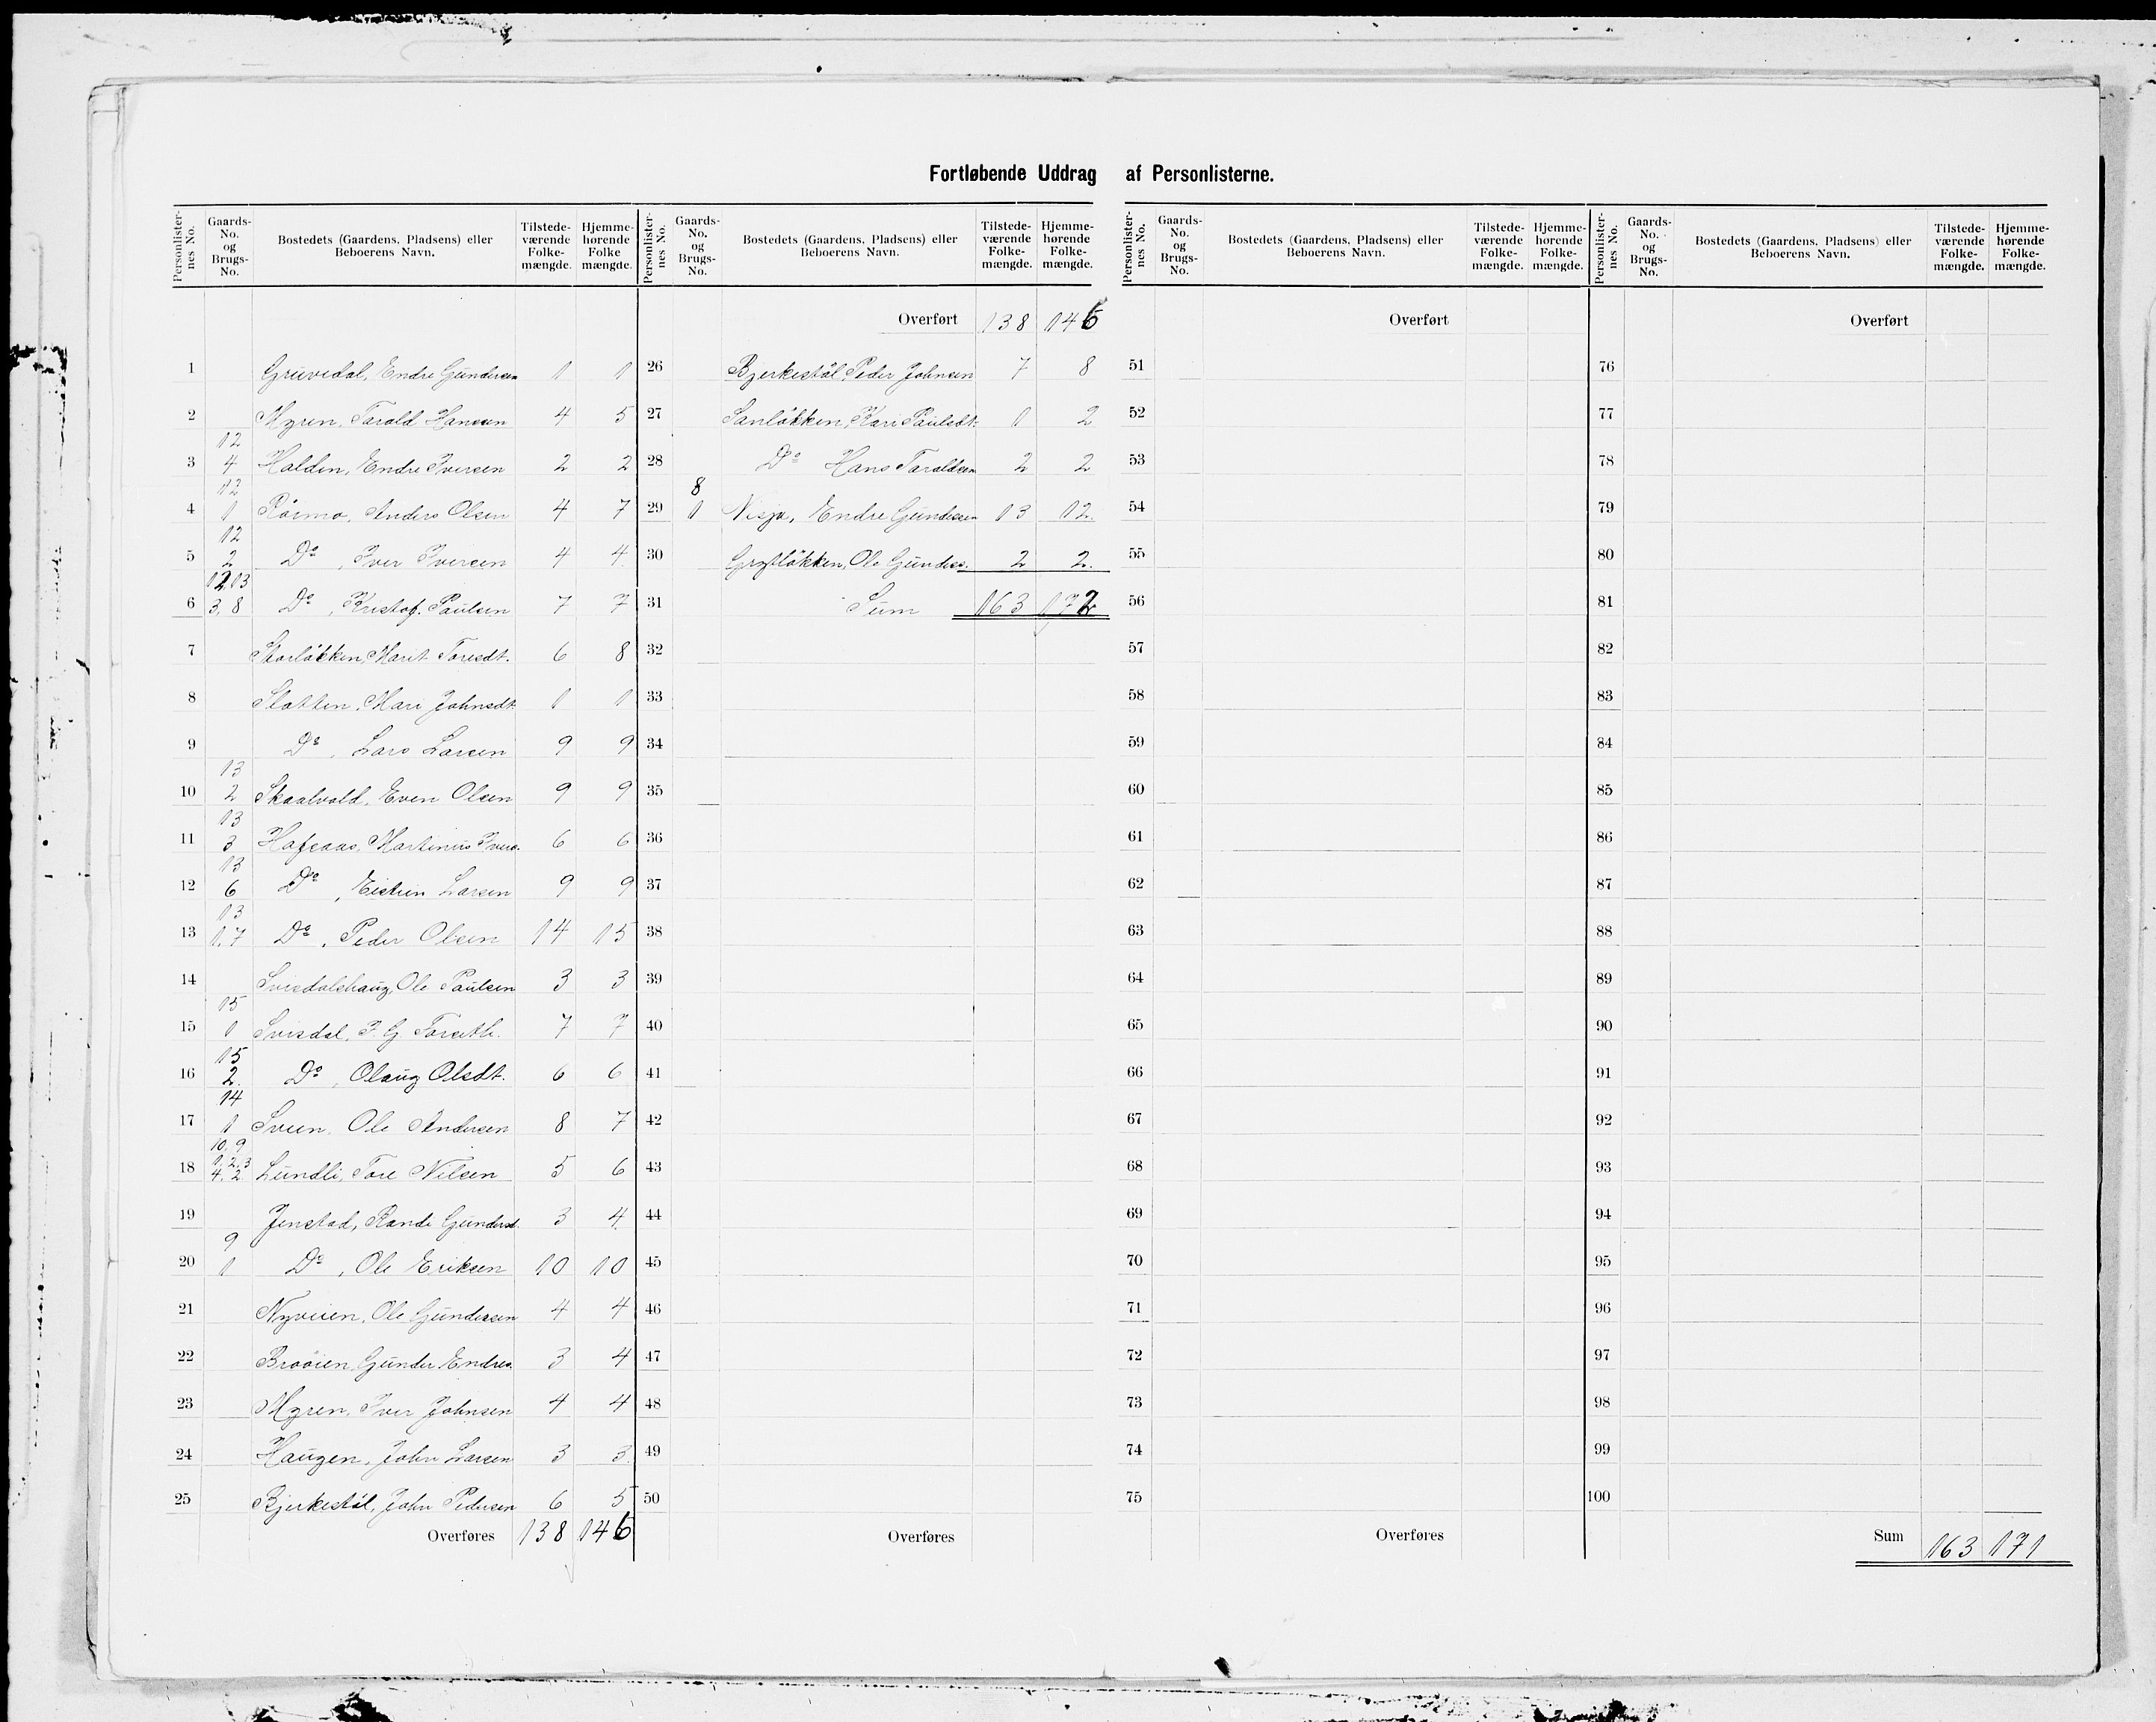 Fortløbende Uddrag af Personlisterne.
Personlister-nes No. Gaards-No. og Brugs-No. Bostedets (Gaardens, Pladsens) eller Beboerens Navn. Tilstede-værende Folke-mængde. Hjemme-hørende Folke mængde.
1 Gruvedal, Endre Gundersen 1 1
2 Myren, Tarald Hansen 4 5
3 12 4 Halden, Endre Iversen 2 2
4 12 1 Rörmo, Anders Olsen 4 7
5 12 2 Do , Iver Iversen 4 4
6 12, 13 3, 8 Do , Kristof. Paulsen 7 7
7 Storløkken, Marit Toresdt. 6 8
8 Slotten, Mari Johnsdt. 1 1
9 Do , Lars Larsen 9 9
10 13 2 Skaalvold, Even Olsen 9 9
11 13 3 Hafsaas, Martinus Ivers. 6 6
12 13 6 Do , Eistein Larsen 9 9
13 13 1, 7 Do , Peder Olsen 14 15
14 Svisdalshaug, Ole Paulsen 3 3
15 15 1 Svisdal, I. G. Forseth. 7 7
16 15 2. Do , Olaug Olsdt. 6 6
17 14 1 Sveen, Ole Andersen 8 7
18 10, 9 1, 2, 3 4, 2 Lundli, Tore Nilsen 5 6
19 Jenstad, Randi Gundersd. 3 4
20 9 1 Do , Ole Eriksen 10 10
21 Nyveien, Ole Gundersen 4 4
22 Brøöien, Gunder Endres. 3 4
23 Myren, Iver Johnsen 4 4
24 Haugen, John Larsen 3 3
25 Bjerkestøl, John Pedersen 6 5
Overføres 138 146
Personlister-nes No. Gaards-No. og Brugs-No. Bostedets (Gaardens, Pladsens) eller Beboerens Navn. Tilstede-værende Folke-mængde. Hjemme-hørende Folke-mængde.
Overført 138 146
26 Bjerkestøl, Peder Johnsen 7 8
27 Sanløkken, Kari Paulsdt. 1 2
28 Do Hans Taraldsen 2 2
29 8 1 Nisja, Endre Gundersen 13 12.
30 Grytløkken, Ole Gunders. 2 2.
31 Sum 163 172
32
33
34
35
36
37
38
39
40
41
42
43
44
45
46
47
48
49
50
Overføres
Personlister-nes No. Gaards-No. og Brugs-No. Bostedets (Gaardens, Pladsens) eller Beboerens Navn. Tilstede-værende Folke-mængde. Hjemme-hørende Folke-mængde.
Overført
51
52
53
54
55
56
57
58
59
60
61
62
63
64
65
66
67
68
69
70
71
72
73
74
75
Overføres
Personlister-nes No. Gaards-No. og Brugs-No. Bostedets (Gaardens, Pladsens) eller Beboerens Navn. Tilstede-værende Folke-mængde. Hjemme-hørende Folke-mængde.
Overført
76
77
78
79
80
81
82
83
84
85
86
87
88
89
90
91
92
93
94
95
96
97
98
99
100
Sum 163 171